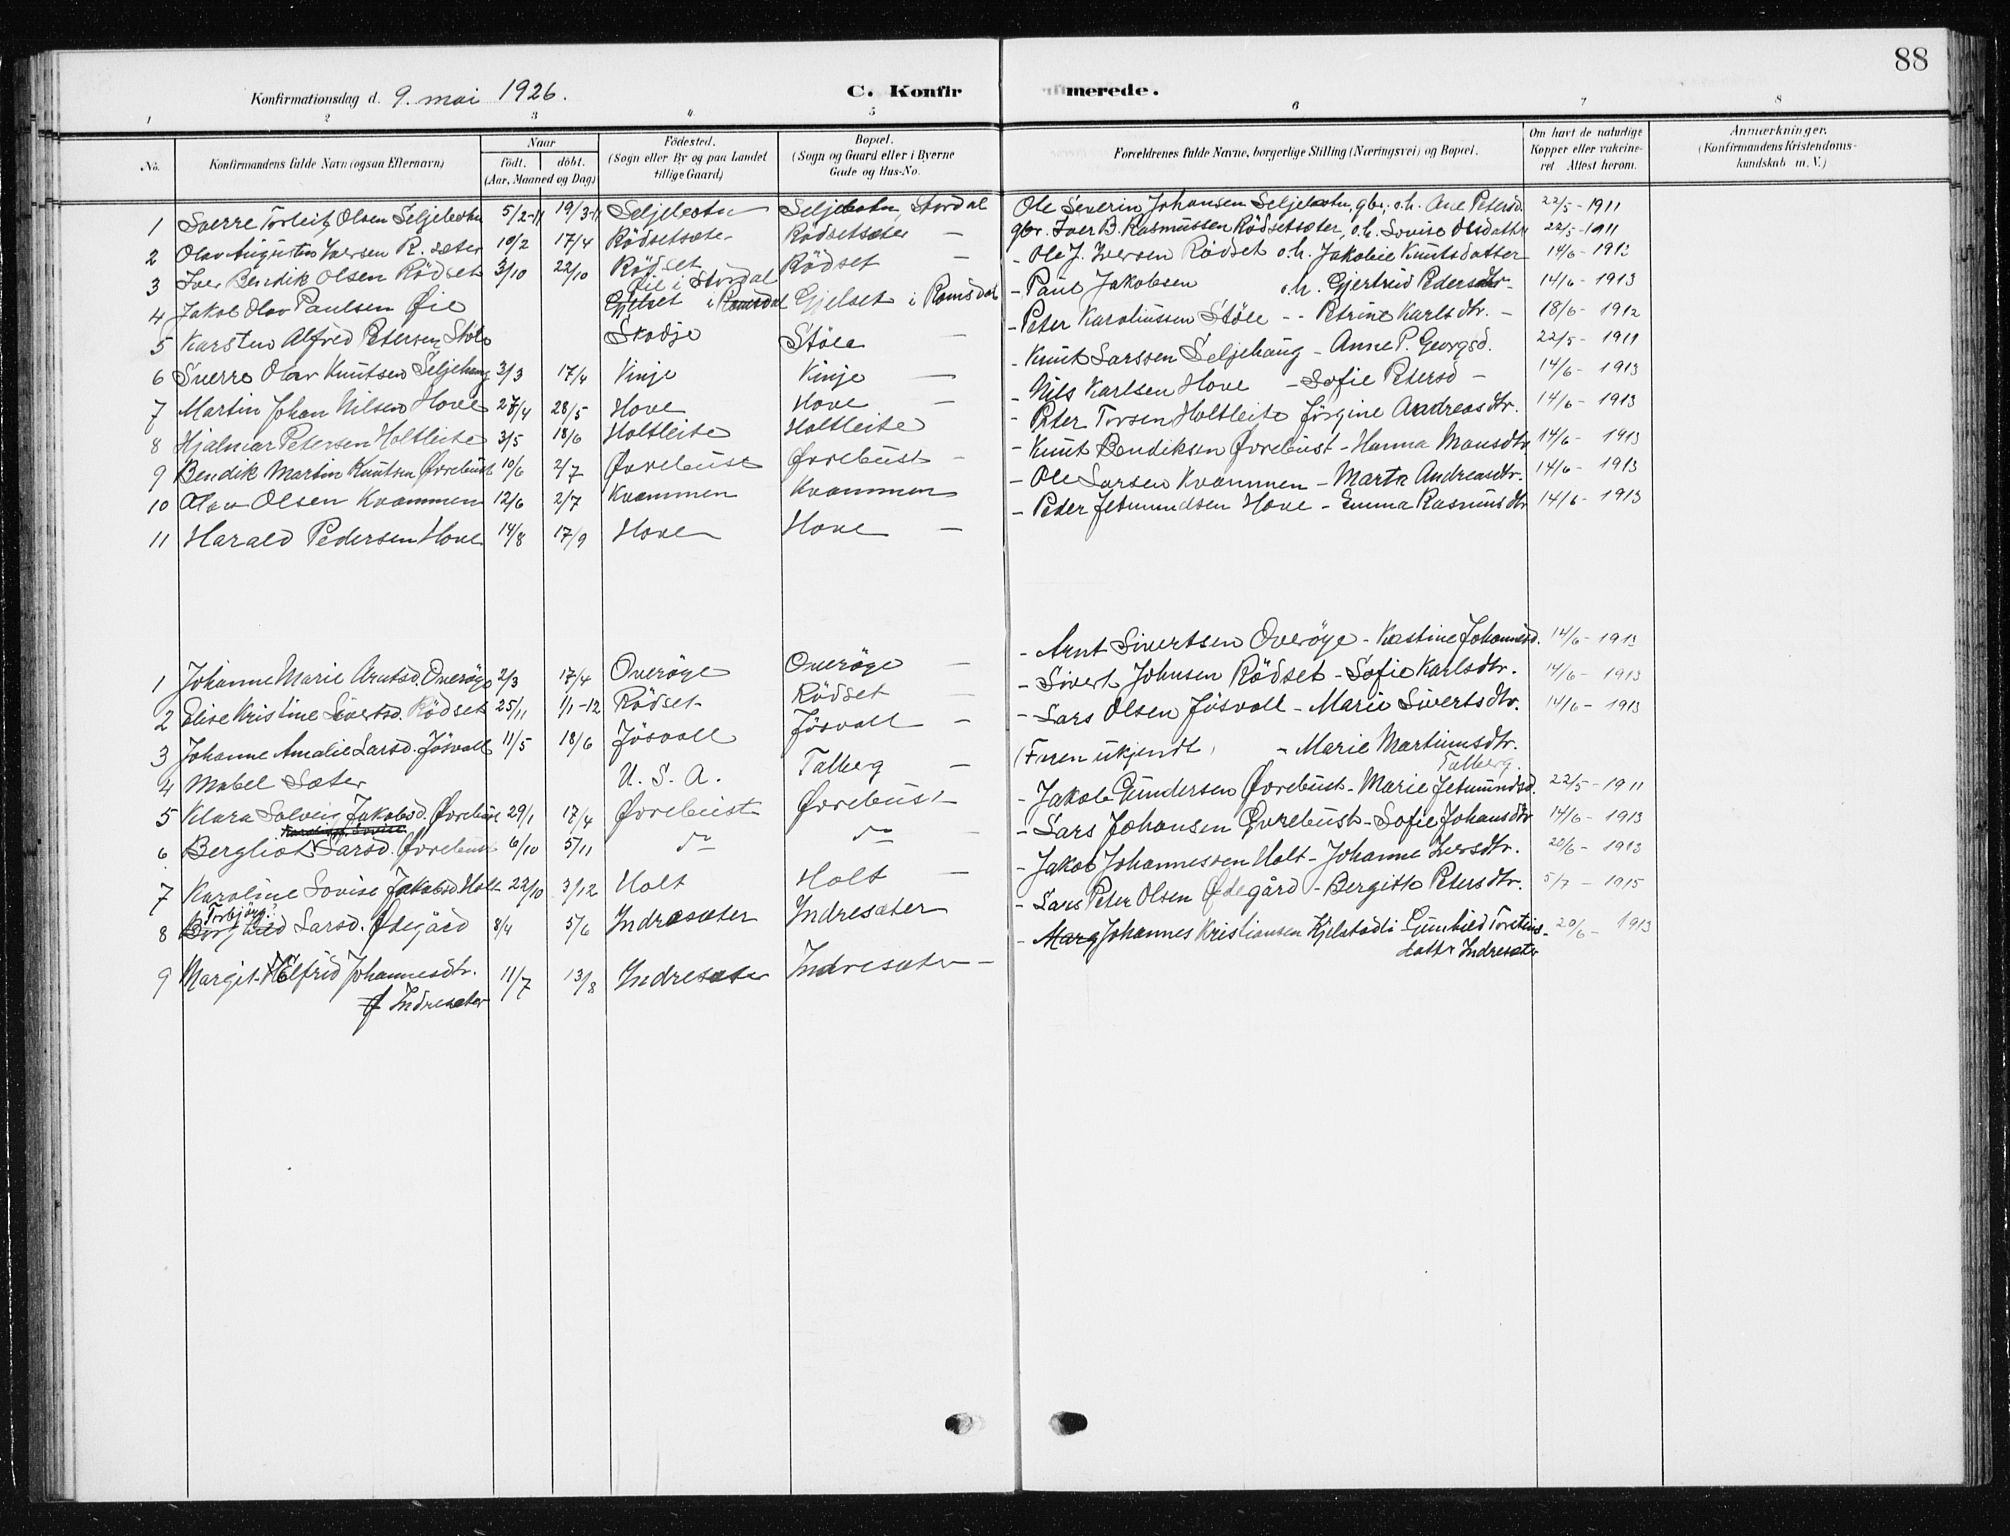 88
Konfirmationsdag d. 9. mai 1926. C. Konfirmerede.
1 2 3 4 5 6 7 8
No. Konfirmandens fulde Navn (ogsaa Efternavn) Naar født. døbt. (Aar, Maaned og Dag) Fødested. (Sogn eller By og paa Landet tillige Gaard) Bopæl. (Sogn og Gaard eller i Byerne Gade og Hus-No. Forældrenes fulde Navne, borgerlige Stilling (Næringsvei) og Bopæl. Om havt de naturlige Kopper eller vakcineret Attest herom. Anmærkninger. (Konfirmandens Kristendomskundskab m. V.)
1 Sverre Torleif Olsen Seljebotn 5/2-11 19/3-11 Seljebotn Seljebotn, Stordal Ole Severin Johansen Seljebotn, gbr. o.h. Ane Petersd. 22/5-1911
2 Olav Augustin Iversen R.sæter 10/2 17/4 Rödsetsæter Rödsetsæter - gbr. Iver B. Rasmussen Rödsetsæter, o.h. Lovise Olsdatter 22/5-1911
3 Iver Bendik Olsen Rödset 3/10 22/10 Rödset Rödset - Ole J. Iversen Rödset o.h. Jakobie Knutsdatter 14/6-1913
4 Jakob Olav Paulsen Øie Øie i Stordal Gjelset i Romsdal Gjelset i Romsdal - Paul Jakobsen o.h. Gjertrud Pedersdtr - 14/6-1913
5 Karsten Alfred Petersen Støle Skodje Støle - Peter Karoliussen Støle - - Petrine Karlsdtr. - 18/6-1912
6 Sverre Olav Knutsen Seljehaug 3/3 17/4 Vinje Vinje - Knut Larssen Seljehaug - Anne P. Georgsd. 22/5-1911
7 Martin Johan Nilsen Hove 27/4 28/5 Hove Hove - Nils Karlsen Hove - Sofie Petersd - 14/6-1913
8 Hjalmar Petersen Holtleite 3/5 18/6 Holtleite Holtleite - Peter Torsen Holtleite Jörgine Andreasdtr. 14/6-1913
9 Bendik Martin Knutsen Øvrebust 10/6 2/7 Øvrebust Øvrebust - Knut Bendiksen Øvrebust - Hanna Monsdtr 14/6-1913
10 Olav Olsen Kvammen 12/6 2/7 Kvammen Kvammen - Ole Larsen Kvammen - Marta Andreasdtr. 14/6-1913
11 Harald Pedersen Hove 14/8 17/9 Hove Hove - Peder Jetmundsen Hove - Emma Rasmusdtr 14/6-1913
1 Johanne Marie Arntsd. Overøye 2/3 17/4 Overøye Overøye - Arnt Sivertsen Overøye - Kastine Johannesd. 14/6-1913
2 Elise Kristine Sivertsd. Rödset 25/11 1/1-12 Rödset Rödset - Sivert Johnsen Rödset - Sofie Karlsdtr. 14/6-1913
3 Johanne Amalie Larsd. Jösvoll 11/5 18/6 Jösvoll Jösvoll - Lars Olsen Jösvoll - Marie Sivertsdtr. 14/6-1913
4 Mabel Sæter U. S. A. Talberg - (Faren ukjendt) - Marie Martinusdtr. Talberg
5 Klara Solveig Jakobsd. Øvrebust 29/1 17/4 Øvrebust Øvrebust - Jakob Gundersen Øvrebust - Marie Jetmundsd. 22/5-1911
6 Bergliot Larsd. Øvrebust 6/10 5/11 do do - Lars Johansen Øvrebust - Sofie Johansdtr 14/6-1913
7 Karoline Lovise Jakobsd Holt 22/10 3/12 Holt Holt - Jakob Johannessen Holt - Johanne Iversdtr. 20/6-1913
8 Torbjörg Borghild Larsd. Ødegård 8/4 5/6 Indresæter Indresæter - Lars Peter Olsen Ødegård - Bergitte Petersdtr. 5/7-1915
9 Margit Elfrid Johannesdtr. Indresæter 11/7 13/8 Indresæter Indresæter - Johannes Kristiansen Kjelstadli - Gunhild Torsteinsdatter Indresæter 20/6-1913